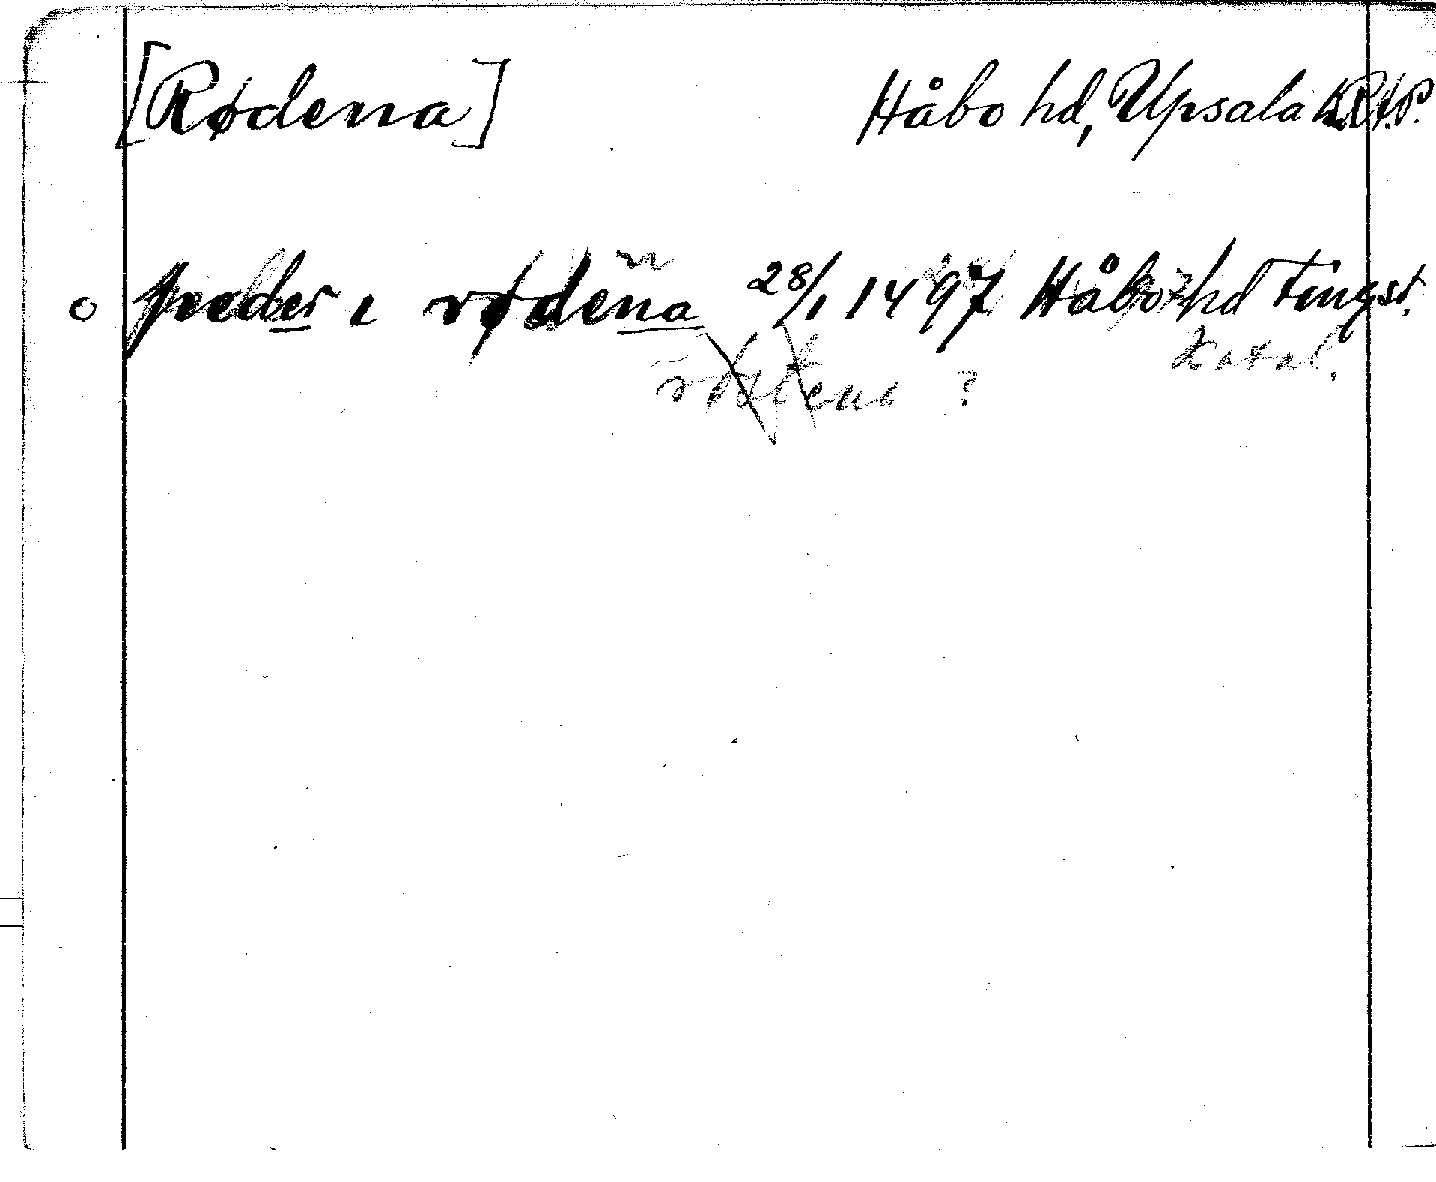 [Rødena] Håbo hd, Upsala L. R.A.P.
o peder i rødena 28/1 1497 Håbo hd Tingst.
Katal.